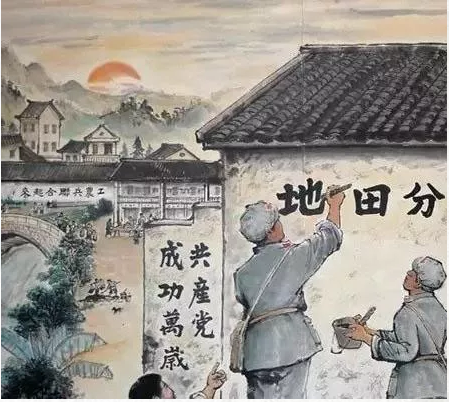 工農兵聯合起來
分田地
共産党
成功萬歲